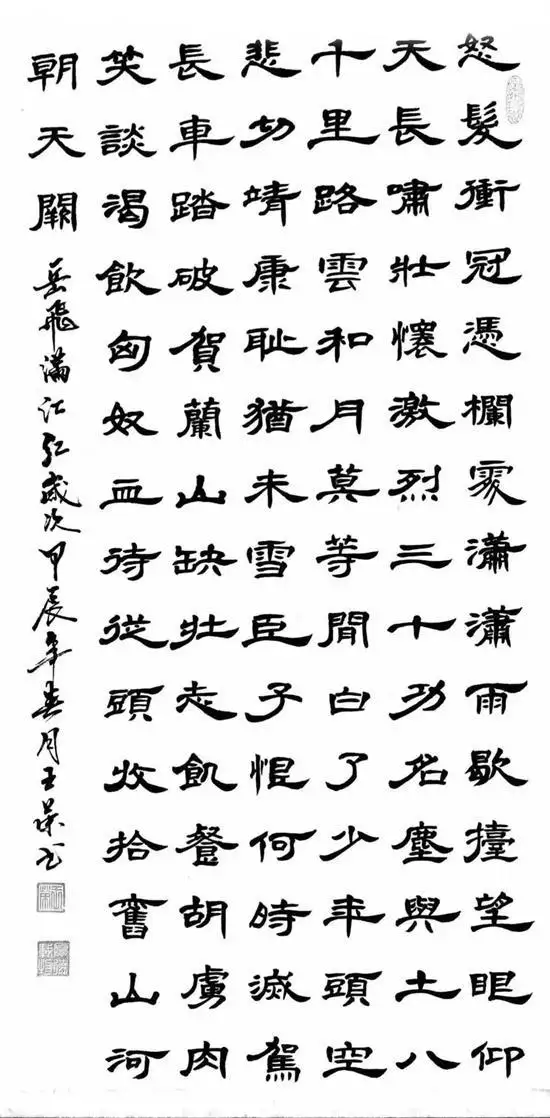 怒髮衝冠憑欄處瀟瀟雨歇擡望眼仰
天長嘯壯懷激烈三十功名塵與土八
千里路雲和月莫等間白了少年頭空
悲切靖康耻猶未雪臣子恨何時滅駕
長車踏破賀蘭山缺壯志飢餐胡虜肉
笑談渴飲匈奴血待從頭收拾舊山河
朝天闕 岳飛滿江紅歲次甲辰年春月王书